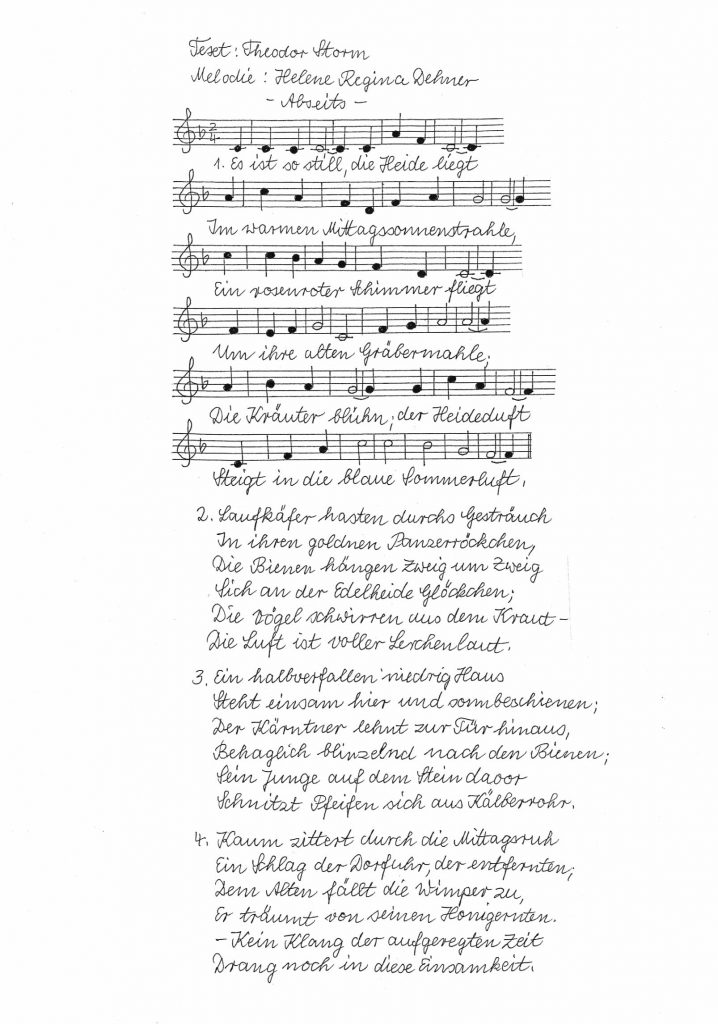 Text: Theodor Storm
Melodie: Helene Regina Dehner
- Abseits -
2/4
1. Es ist so still, die Heide liegt
Im warmen Mittagssonnenstrahle,
Ein rosenroter Schimmer fliegt
Um ihre alten Gräbermahle;
Die Kräuter blühn; der Heideduft
Steigt in die blaue Sommerluft.
2. Laufkäfer hasten durchs Gesträuch
In ihren goldnen Panzerröckchen,
Die Bienen hängen Zweig um Zweig
Sich an der Edelheide Glöckchen;
Die Vögel schwirren aus dem Kraut -
Die Luft ist voller Lerchenlaut.
3. Ein halbverfallen niedrig Haus
Steht einsam hier und sonnbeschienen;
Der Kärntner lehnt zur Tür hinaus,
Behaglich blinzelnd nach den Bienen;
Sein Junge auf dem Stein davor
Schnitzt Pfeifen sich aus Kälberrohr.
4. Kaum zittert durch die Mittagsruh
Ein Schlag der Dorfuhr, der entfernten;
Dem Alten fällt die Wimper zu,
Er träumt von seinen Honigernten.
- Kein Klang der aufgeregten Zeit
Drang noch in diese Einsamkeit.